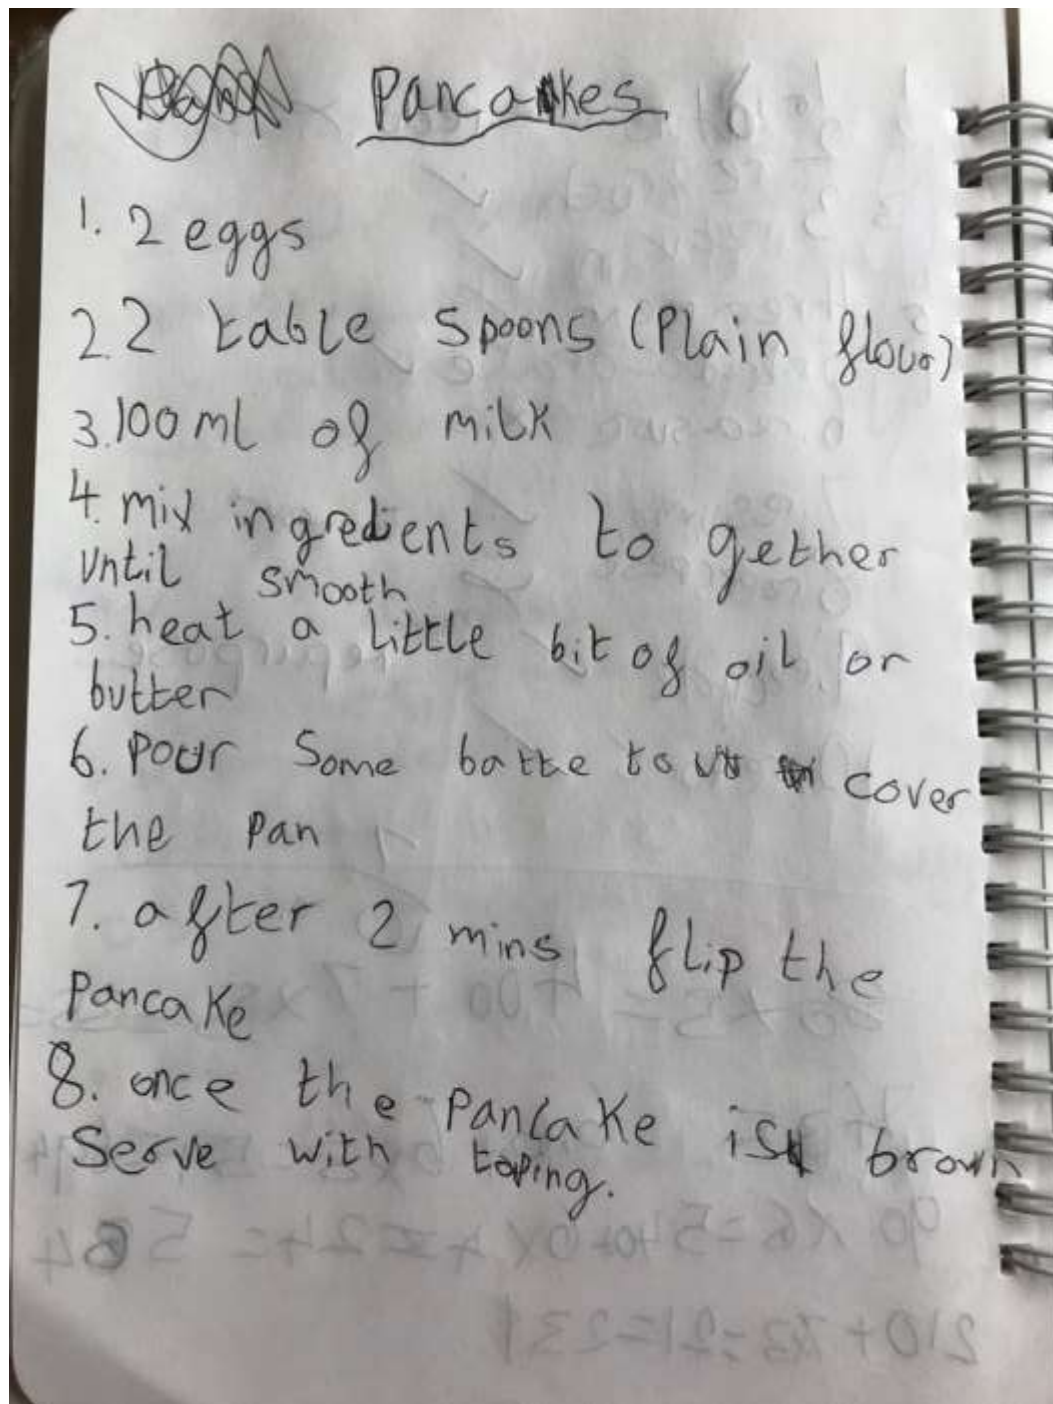 Pancakes
1. 2 eggs
2. 2 table spoons (Plain flour)
3. 100 ml of milk
4. mix ingredients to gether
until smooth
5. heat a little bit of oil or
butter
6. Pour some batte to cover
the pan
7. after 2 mins flip the
Pancake
8. once the Pancake is brown
Serve with toping.